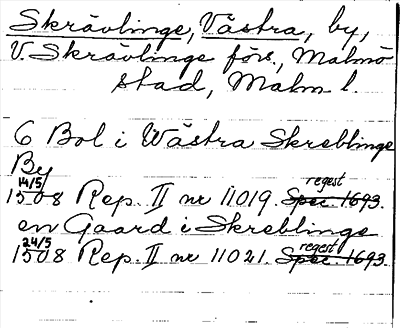 Skrävlinge, Västra, by,
V. Skrävlinge förs., Malmö
stad, Malm l.
6 Bol i Wästra Skreblinge
By
14/5 regest
1508 Rep. II nr 11019. Spec. 1693.
en Gaard i Skreblinge
24/5 regest
1508 Rep. II nr 11021. Spec. 1693.